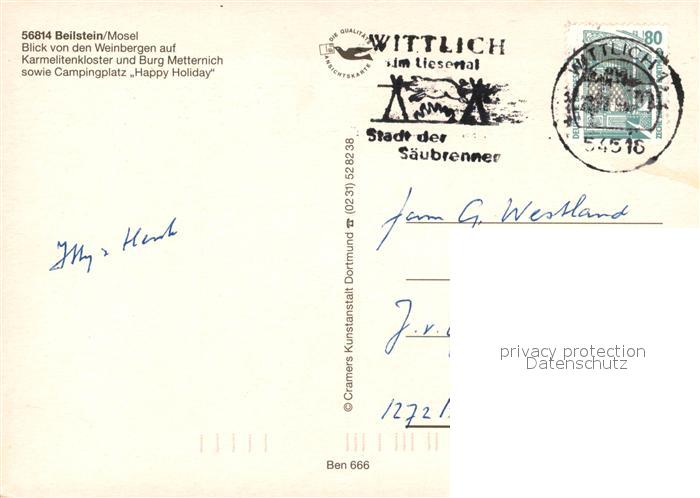 56814 Beilstein/Mosel
Blick von den Weinbergen auf
Karmelitenkloster und Burg Metternich
sowie Campingplatz „Happy Holiday“
DIE QUALITÄTS
ANSICHTSKARTE
WITTLICH
im Liesertal
Stadt der
Säubrenner
WITTLICH
54516
80
© Cramers Kunstanstalt Dortmund ☎ (02 31) 52 82 38
Fam G. Westland
J. v.
1272
privacy protection
Datenschutz
Ben 666